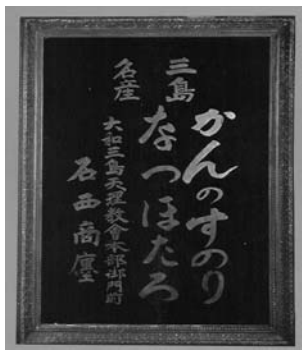 三島
名産
かんのすのり
なつほたろ
大和三島天理教會本部御門前
石西商店